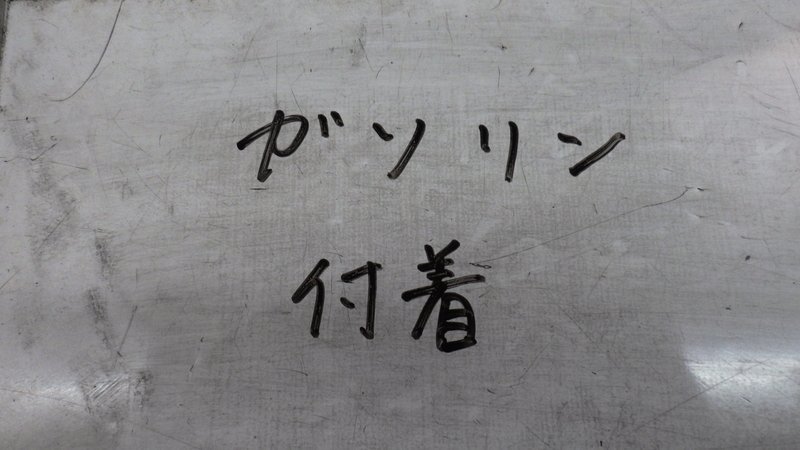 ガソリン
付着